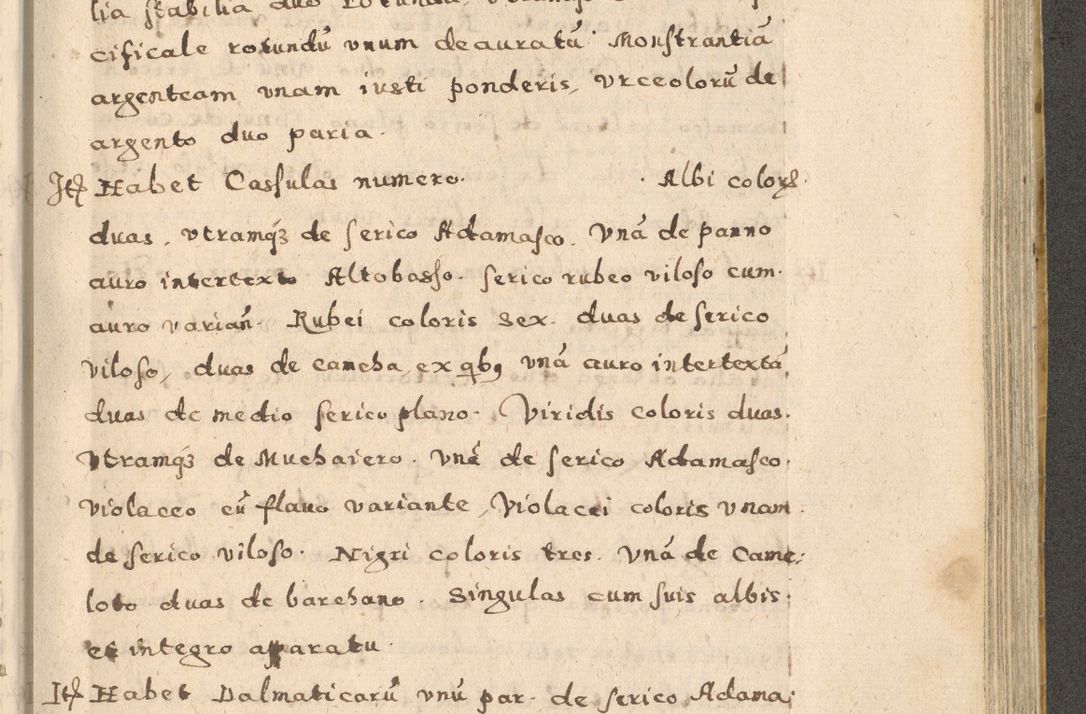 lia stabilia duo rotunda,
cificale rotundū vnum deauratū. Monstrantiā
argenteam vnam iusti ponderis, vrceolorū de
argento duo paria.
Itꝫ Habet Cassulas numero. Albi colorꝫ.
duas, vtramqꝫ de serico Adamasco. Vnā de panno
auro intertexto Altobasso. serico rubeo viloso cum
auro varian̄. Rubei coloris sex. duas de serico
viloso, duas de cancha, ex qbꝯ vnā auro intertextā,
duas de medio serico plano. Viridis coloris duas.
Vtramqꝫ de Muchaiero. vnā de serico Adamasco
violaceo cū flauo variante, Violacei coloris vnam.
de serico viloso. Nigri coloris tres. Vnā de Came,
loto duas de barchano. Singulas cum suis albis.
et integro apparatu.
Itꝫ Habet Dalmaticarū vnū par. de serico Adama,